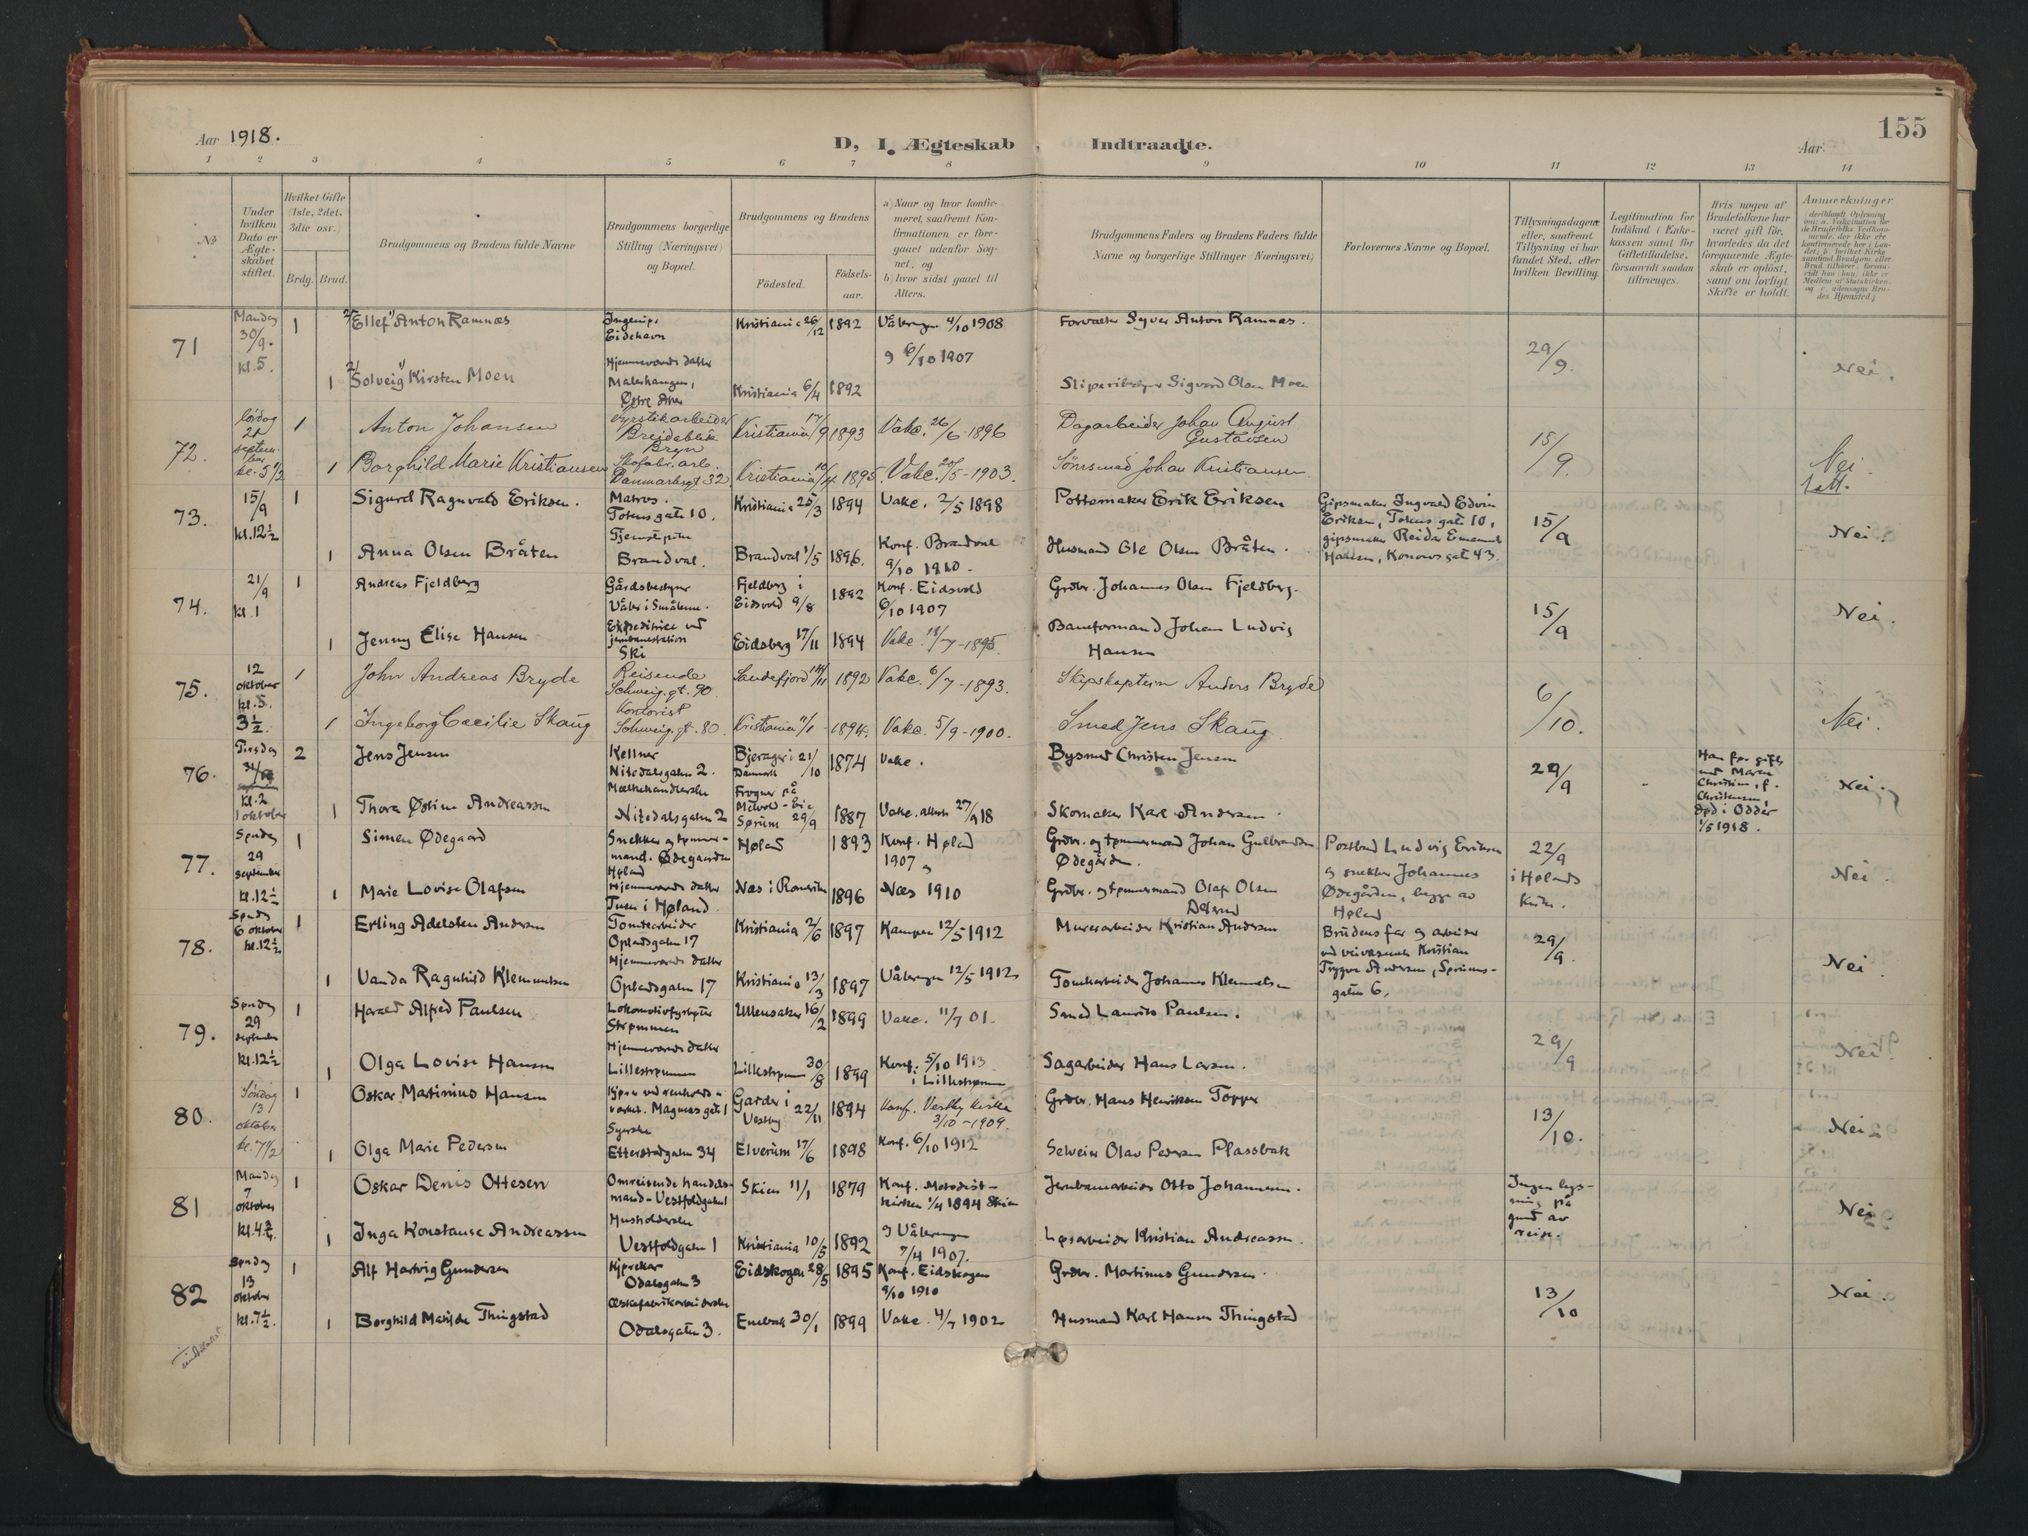 155
Aar 1918.
D, I. Ægteskab Indtraadte.
Aar
1 2 3 4 5 6 7 8 9 10 11 12 13 14
No
Under hvilken Dato er Ægteskabet stiftet.
Hvilket Gifte (1ste, 2det, 3die osv.)
Brdg. Brud.
Brudgommens og Brudens fulde Navne
Brudgommens borgerlige Stilling (Næringsvei) og Bopæl.
Brudgommens og Brudens
Födested. Födselsaar.
a) Naar og hvor konfirmeret, saafremt Konfirmationen er foregaaet udenfor Sognet, og
b) hvor sidst gaaet til Alters.
Brudgommens Faders og Brudens Faders fulde Navne og borgerlige Stillinger (Næringsvei)
Forlovernes Navne og Bopæl.
Tillysningsdagene eller, saafremt Tillysning ei har fundet Sted, efter hvilken Bevilling.
Legitimation for Indskud i Enkekassen samt for Giftetilladelse, forsaavidt saadan tiltrænges.
Hvis nogen af Brudefolkene har været gift för, hvorledes da det foregaaende Ægteskab er oplöst, samt om lovligt Skifte er holdt.
Anmærkninger
71 Mandag 30/9. kl. 5.
1 Ellef Anton Ramnæs Kristiania 26/12 1892 Vålerengen 4/10 1908 Forvalter Syver Anton Ramnæs.
29/9 Nei.
1 Solveig Kirsten Moen Hjemmeværende datter Malerhaugen, Østre Aker Kristiania 6/4 1892 6/10 1907 Sliperibestyrer Sigvard Olsen Moen
72. lørdag 21 september kl. 5 1/2
1 Anton Johansen Fyrstikarbeider Breidablik Bryn Kristiania 17/9 1893 Vakc. 26/6-1896 Dagarbeider Johan August Gustavsen
15/9. Nei
1 Borghild Marie Kristiansen Skofabr. arb. Danmarksgt 32. Kristiania 1895 Vakc. 20/5-1903. Johan Kristiansen
73. 15/9 kl. 12 1/2
1 Sigurd Ragnvald Eriksen. Matros. Totensgate 10. Kristiania 25/3 1894 Vakc. 2/5 1898 Pottemaker Erik Eriksen
Gipsmaker Ingvald Edvin Eriksen, Totens gate 10, gipsmaker Reidar Emanuel Hansen, Konows gate 43.
15/9 Nei.
1 Anna Olsen Bråten Tjenestepike Brandval. Brandval 1/5 1896. Konf. Brandval 9/10 1910. Husmand Ole Olsen Bråten.
74. 21/9 kl. 1
1 Andreas Fjeldberg Gårdsbestyrer Våler i Smålene. Fjeldberg i Eidsvold 9/8 1892 Konf. Eidsvold 6/10 1907 Grdbr. Johannes Olsen Fjeldberg.
15/9 Nei.
1 Jenny Elise Hansen Expeditrice ved jernbanestation Ski Eidsberg 17/11 1894 Vakc. 18/7-1895. Baneformand Johan Ludvig Hansen
75. 12 oktober kl. 5. 3 1/2
1 John Andreas Bryde Reisende Schweig. gt. 90. Sandefjord 14/11 1892 Vakc. 6/7-1893. Skipskaptein Anders Bryde
6/10. Nei.
1 Ingeborg Cæcilie Skaug Kontorist Schweig. gt. 80. Kristiania 11/1 1894. Vakc. 5/9-1900. Smed Jens Skaug.
76. Tirsdag kl. 2 1 oktober
2 Jens Jensen Kellner Nitedalsgaten 2. Bjerager i Danmark 21/10 1874 Vakc. Bysmed Christen Jensen
29/9 Han før gift med Maren Christine, f. Christensen, død i Odder 1/5 1918. Nei.
1 Thora Østine Andreassen Melkehandlerske Nitedalsgaten 2 Frogner på Sørum 29/9 1887 Vakc. attest 27/9 18 Skomaker Karl Andersen.
77. Søndag 29 september kl. 12 1/2
1 Simen Ødegaard Snekker og tømmermand. Ødegaarden Høland Høland 1893 Konf. Høland 1907 Grdbr. og tømmermand Johan Gulbrandsen Ødegården.
Postbud Ludvig Eriksen og snekker Johannes Ødegården, begge av Høland
22/9 i Hølands kirke. Nei.
1 Marie Lovise Olafsen Hjemmeværende datter Tuen i Høland. Næs i Romerike 1896 Næs 1910 Grdbr. og tømmermand Olaf Olsen
78. Søndag 6 oktober kl. 12 1/2
1 Erling Adelsten Andersen Tomtearbeider Oplandsgaten 17 Kristiania 2/6 1897 Kampen 12/5 1912 Murerarbeider Kristian Andersen
Brudens far og arbeider ved veivæsenet Kristian Trygve Andersen, Sørumsgaten 6.
29/9. Nei.
1 Vanda Ragnhild Klemmetsen Hjemmeværende datter Oplandsgaten 17 Kristiania 13/3 1897 Vålerengen 12/5 1912 Tomtearbeider Johannes Klemmetsen
79. Søndag 29 september kl. 12 1/2
1 Harald Alfred Paulsen Lokomotivfyrbøter Strømmen Ullensaker 16/2 1899 Vakc. 11/7 01. Smed Laurits Paulsen.
29/9 Nei.
1 Olga Lovise Hansen Hjemmeværende datter Lillestrømmen Lillestrømmen 30/8 1899 Konf. 5/10 1913 i Lillestrømmen Sagarbeider Hans Larsen.
80. Søndag 13 oktober kl. 7 1/2
1 Oskar Martinius Hansen Kjører ved renholdsverket. Magnus gate 1 Garder i Vestby 22/11 1894 Konf. Vestby kirke 3/10-1909. Grdbr. Hans Henriksen Topper
13/10. Nei
1 Olga Marie Pedersen Syerske Etterstadgaten 34 Elverum 17/6 1898 Konf. 6/10 1912 Selveier Olav Pedersen Plassbak
81 Mandag 7 oktober kl. 4 3/4
1 Oskar Denis Ottesen Omreisende handelsmand - Vestfoldgaten 1 Skien 11/1 1879 Konf. Metodistkirken 1/4 1894 Skien Jernbanearbeider Otto Johannesen.
Ingen lysning på grund av reise. Nei
1 Inga Konstanse Andreassen Husholderske Vestfoldgaten 1 Kristiania 10/5 1892 Vålerengen 7/4 1907. Løsarbeider Kristian Andreassen.
82 Søndag 13 oktober kl. 7 1/2.
1 Alf Hartvig Gundersen Kjørekar Odalsgaten 3 Eidskogen 28/5 1895 Konf. Eidskogen 9/10 1910 Grdbr. Martinus Gundersen.
13/10 Nei.
1 Borghild Matilde Thingstad Æskefabrikarbeiderske Odalsgaten 3. Enebak 30/1 1899 Vakc. 4/7 1902 Husmand Karl Hansen Thingstad